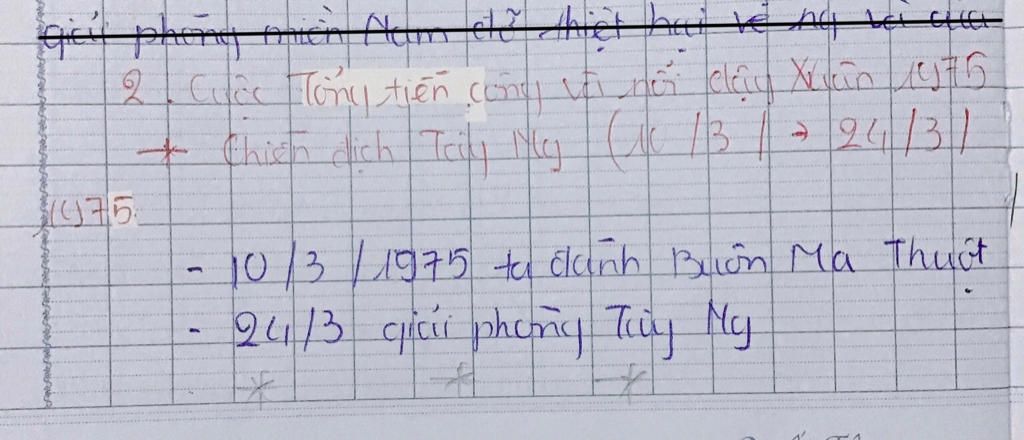 giải phóng miền Nam đỡ thiệt hại về ng và của
2. Cuộc Tổng tiến công và nổi dậy Xuân 1975
+ Chiến dịch Tây Ng (10/3/ → 24/3/
1975.
- 10/3/1975 ta đánh Buôn Ma Thuột
- 24/3 giải phóng Tây Ng